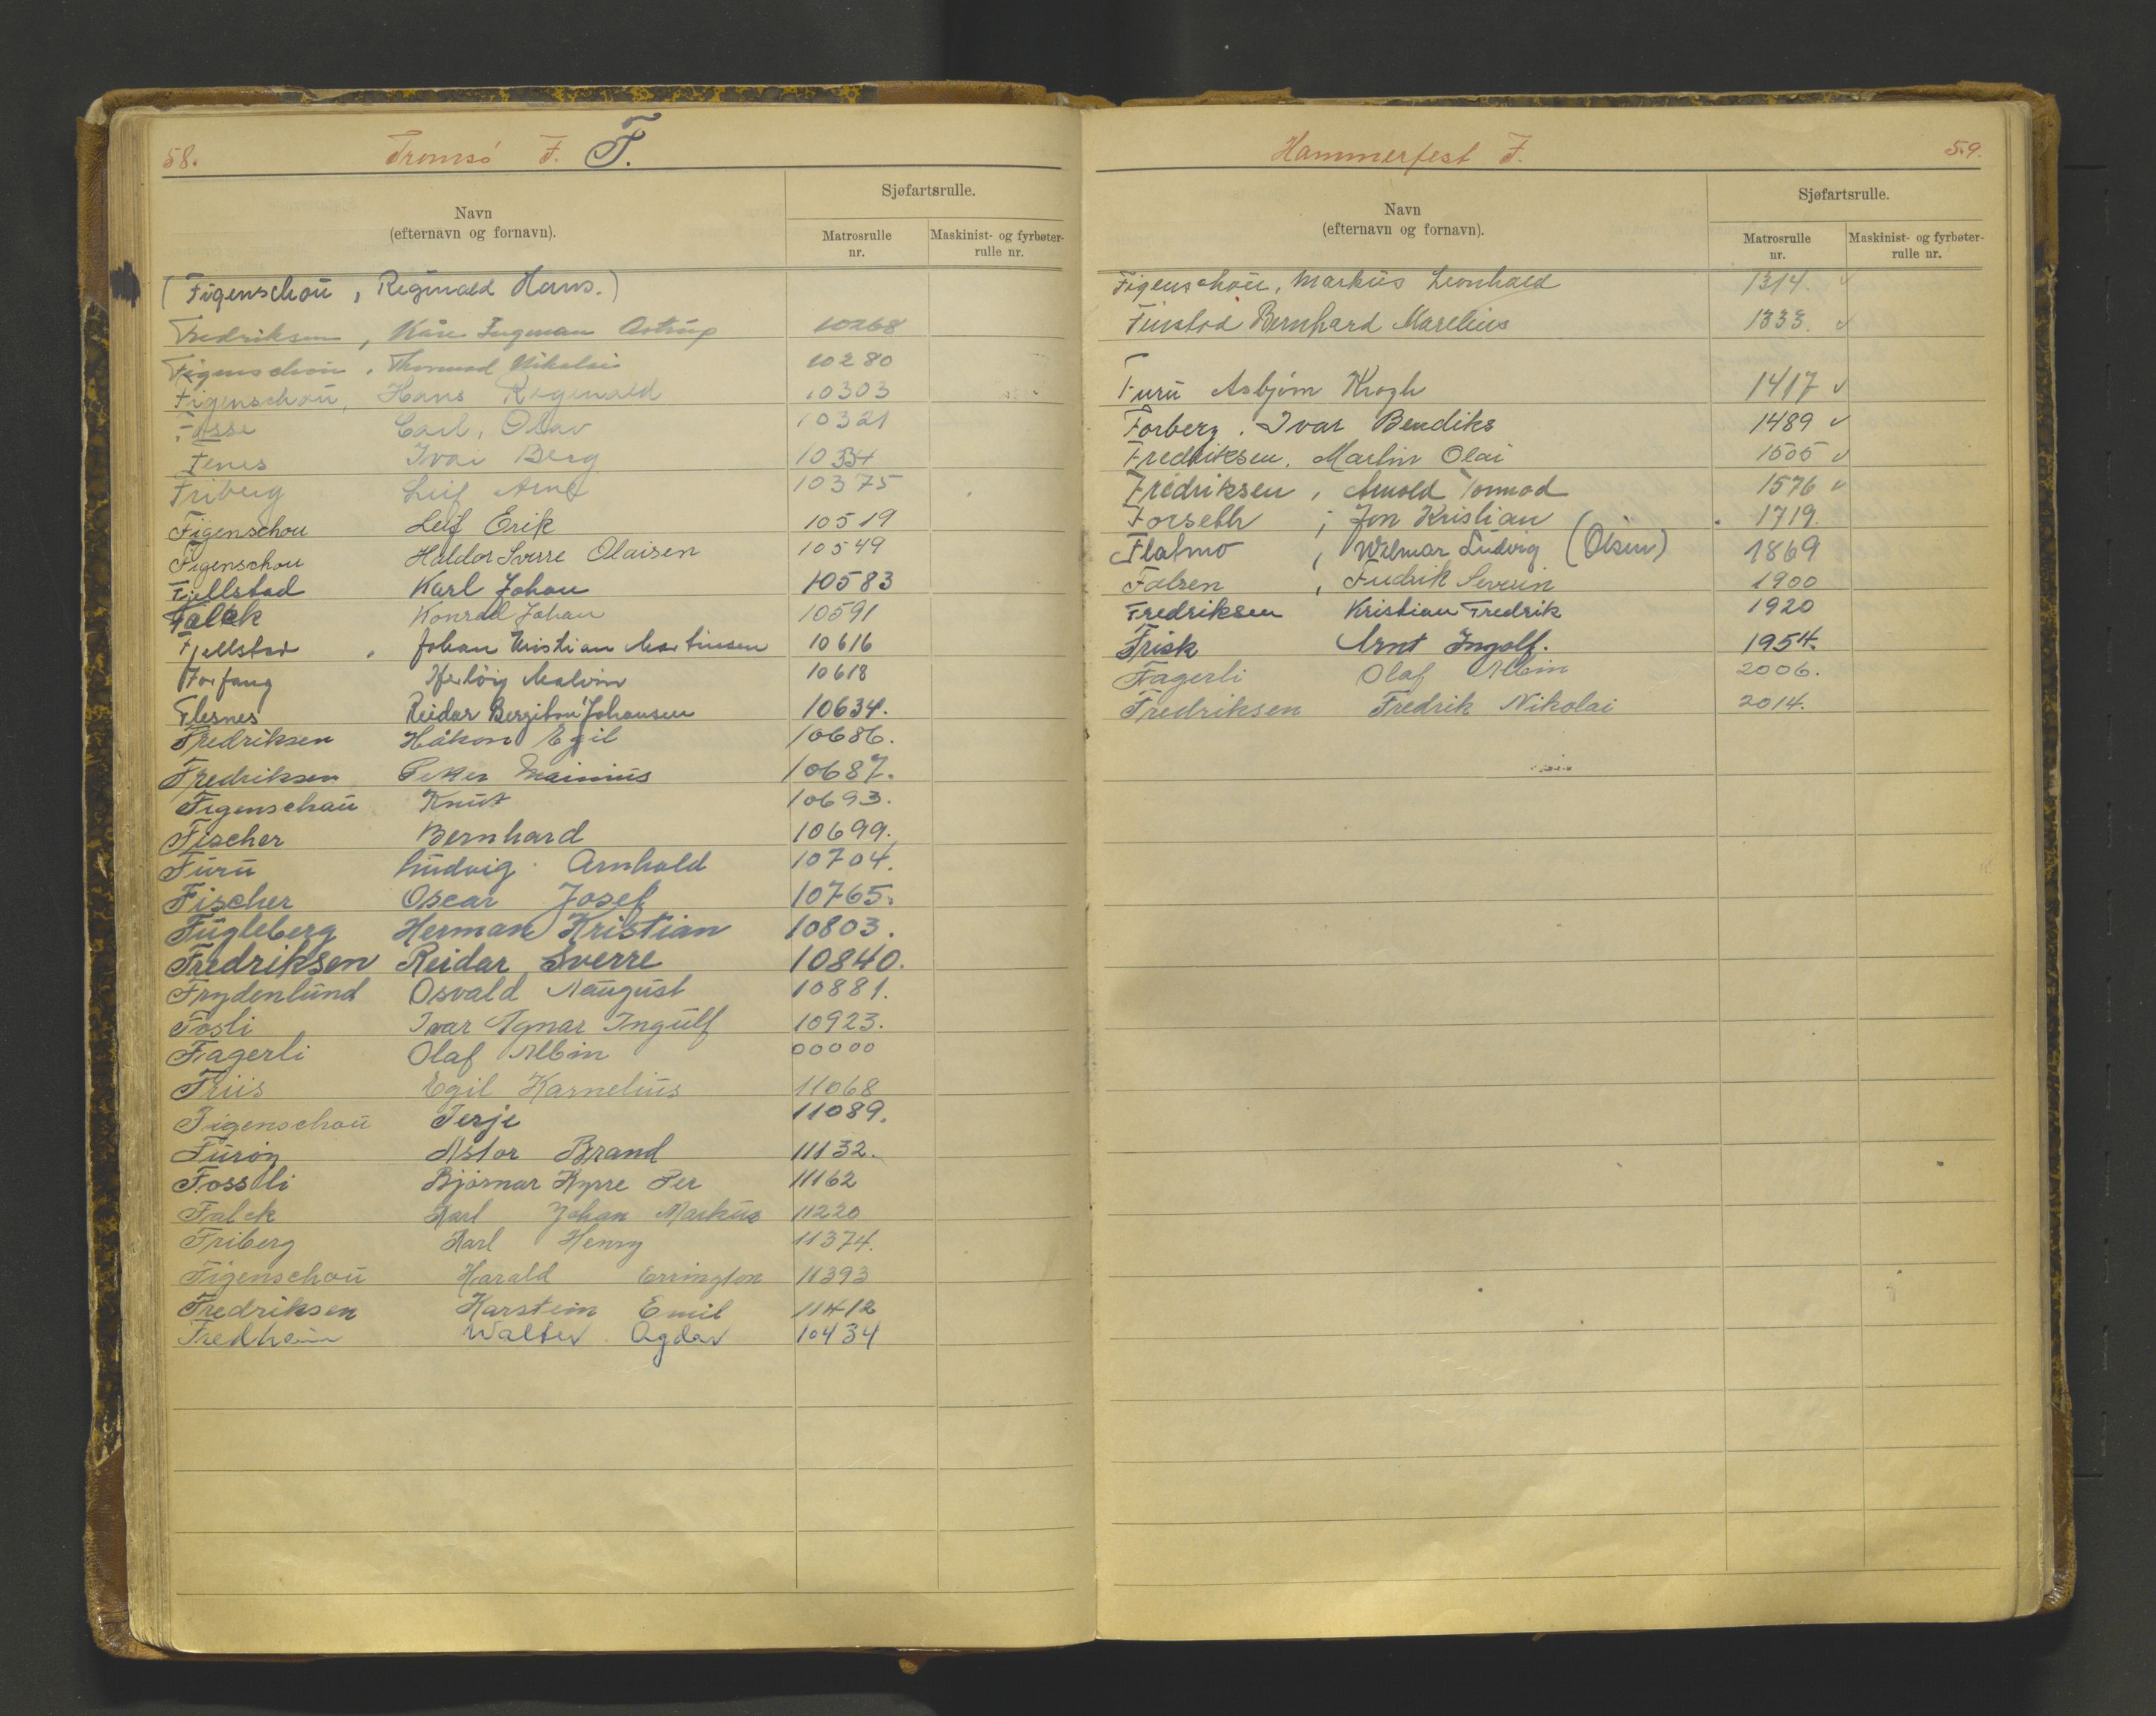 58. Tromsø F. F.
Sjøfartsrulle.
Navn
(efternavn og fornavn).
Matrosrulle nr.
Maskinist- og fyrbøter-rulle nr.
(Figenschou, Reginald Hans.)
Fredriksen, Kåre Ingeman Astrup 10268
Figenschou, Thormod Nikolai 10280
Figenschou, Hans Reginald 10303
Fosse Carl, Olav 10321
Fenes Ivar Berg 10334
Friberg Leif Arne 10375
Figenschou Leif Erik 10519
Figenschou Haldor Sverre Olaisen 10549
Fjellstad Karl Johan 10583
Falck Konrad Johan 10591
Fjellstad, Johan Kristian Martinsen 10616
Forfang Malvin 10618
Flesnes Reidar Bergiton Johansen 10634.
Fredriksen Håkon Egil 10686.
Fredriksen Peter Mainius 10687.
Figenschau Knut 10693.
Fischer Bernhard 10699.
Furu Ludvig Arnhold 10704.
Fischer Oscar Josef 10765.
Fugleberg Herman Kristian 10803.
Fredriksen Reidar Sverre 10840.
Frydenlund Osvald August 10881.
Fosli Ivar Agnar Ingulf 10923.
Fagerli Olaf Albin 00000
Friis Egil Karnelius 11068
Figenschou Terje 11089.
Furøy Astor Brand 11132.
Fossli Bjørnar Kyrre Per 11162
Falck Karl Johan Markus 11220
Friberg Karl Henry 11374.
Figenschou Harald Errington 11393
Fredriksen Karstein Emil 11412
Fredheim Walter Agdar 10434
Hammerfest F. 59.
Sjøfartsrulle.
Navn
(efternavn og fornavn).
Matrosrulle nr.
Maskinist- og fyrbøter-rulle nr.
Figenschou, Markus Leonhard 1314. ✓
Finstad Bernhard Marelius 1333. ✓
Furu Asbjørn Krogh 1417 ✓
Forberg, Ivar Bendiks 1489 ✓
Fredriksen, Martin Olai 1505 ✓
Fredriksen, Arnold Tormod 1576 ✓
Forseth, Jon Kristian 1719.
Flatmo, Wilmar Ludvig (Olsen) 1869
Falsen, Fredrik Severin 1900
Fredriksen Kristian Fredrik 1920
Frisk Arnt Ingolf. 1954.
Fagerli Olaf Albin 2006.
Fredriksen Fredrik Nikolai 2014.